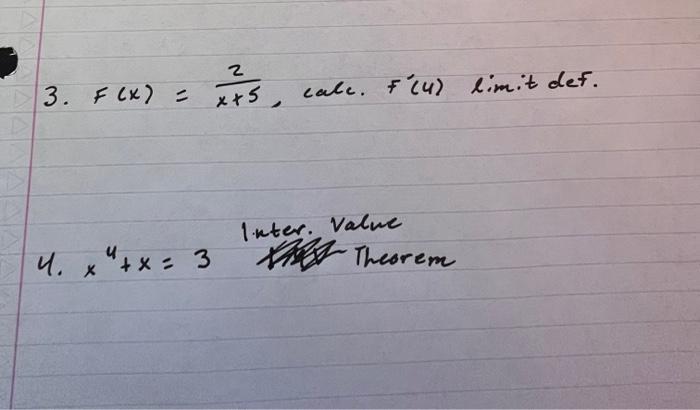 3. F(x) = 2/(x+5), calc. F'(4) limit def.
Inter. Value
4. x⁴+x = 3 Theorem